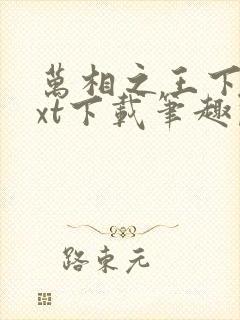 萬相之王下
xt下載筆趣
路東元